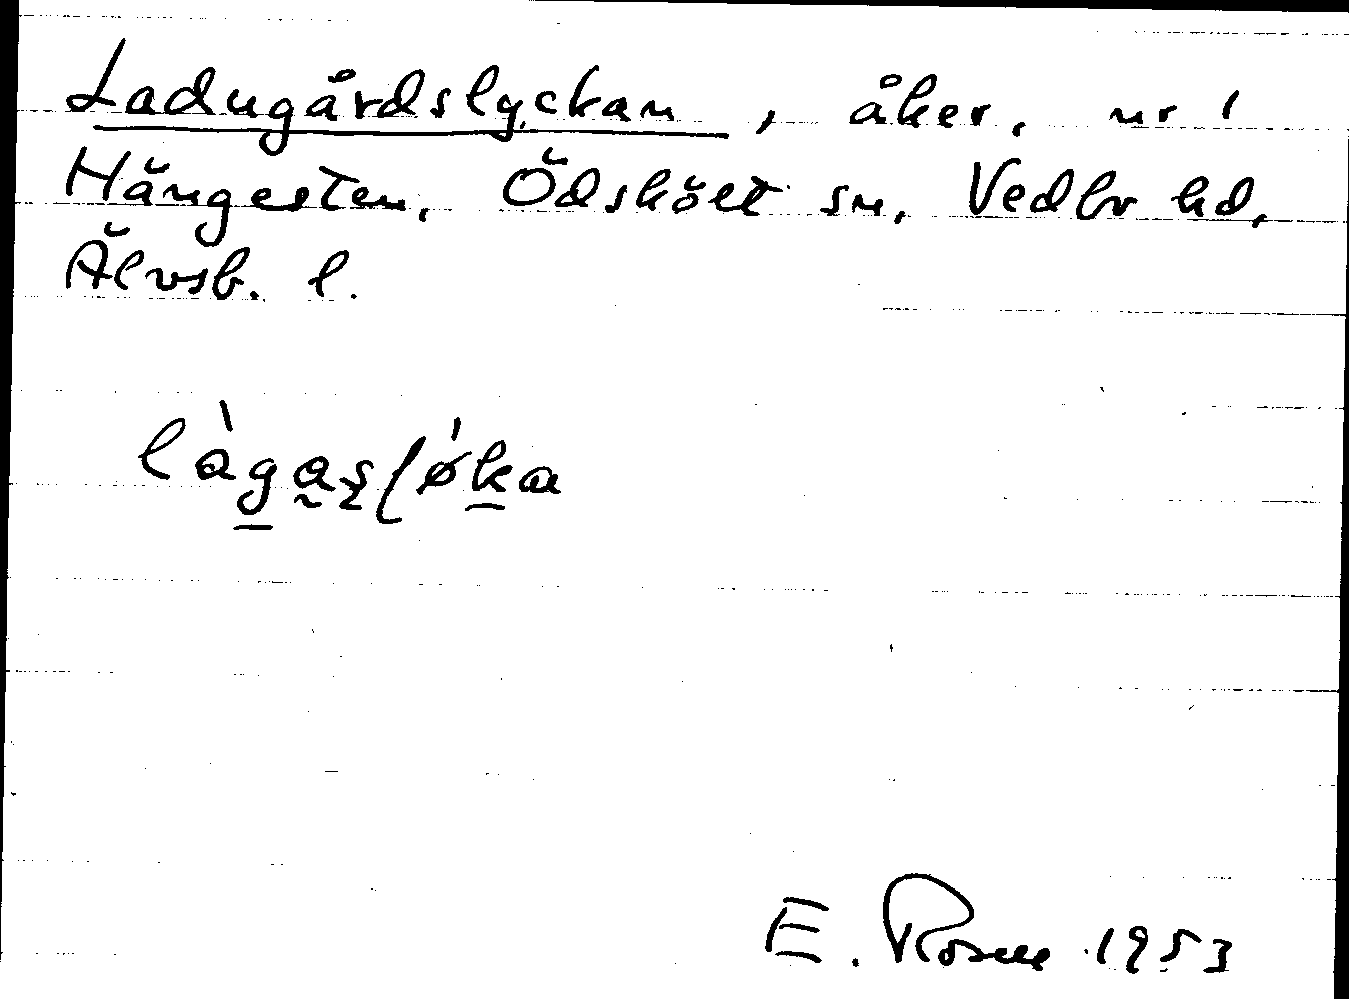 Ladugårdslyckan, åker, nr 1
Hängesten, Ödskölt sn, Vedbo hd,
Älvsb. l.
làgasløka
E. Rosell 1953